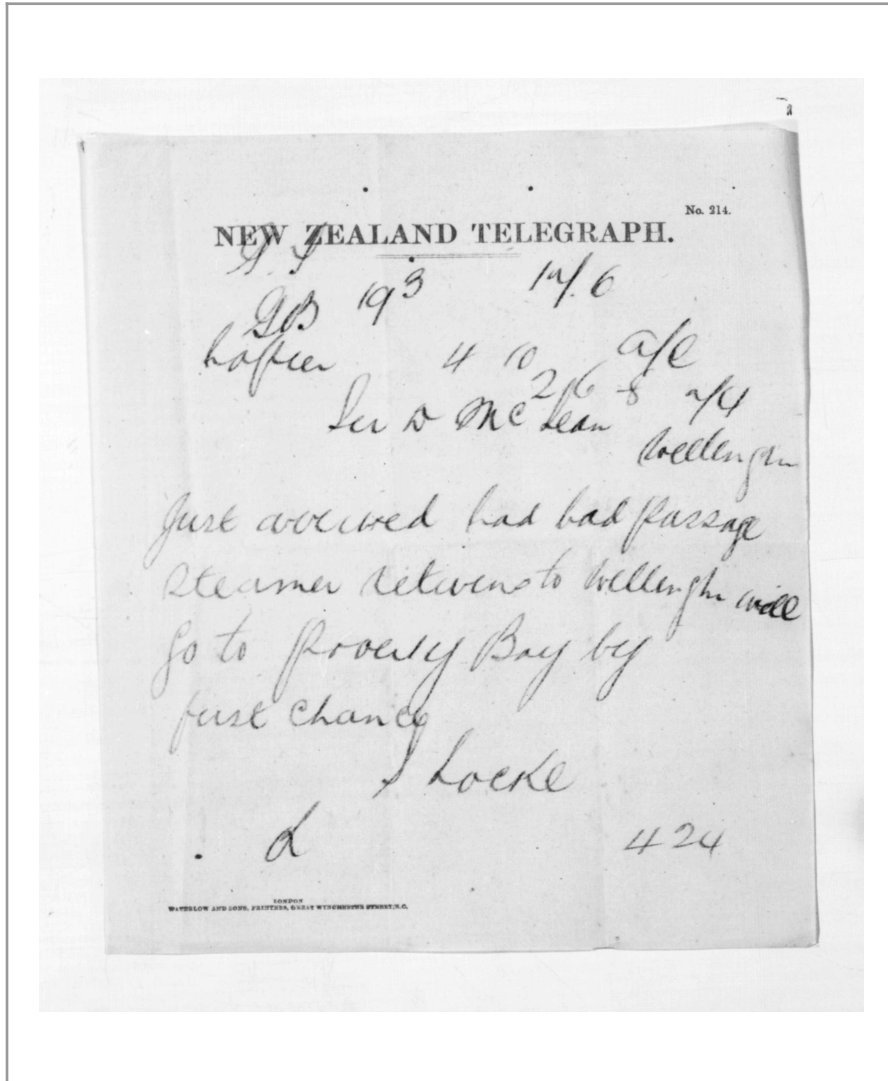 No. 214.
NEW ZEALAND TELEGRAPH.
GB 19 3 6
Napier 4 10 a/c
2 6 8
Sir D McLean
Wellington
Just arrived had bad passage
Steamer returns to Wellington will
go to Poverty Bay by
first chance
S Locke
L 424
LONDON
WATERLOW AND SONS, PRINTERS, GREAT WINCHESTER STREET, E.C.